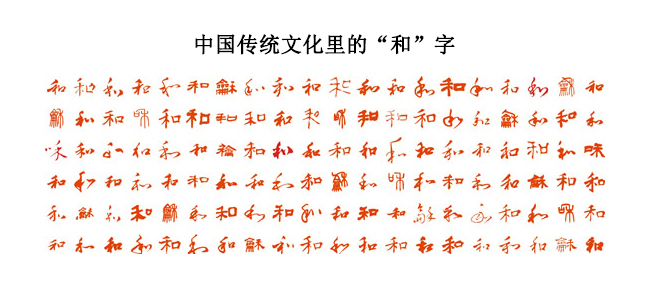 中国传统文化里的“和”字
和和和和和和龢和和和和和和和和和和和龢和
龢和和咊和和和和和和咊和和和和和龢和和和
咊和和和和和和和和和和和和和和和和和咊
和和和和和和和和和和龢和咊和和和和龢和和
和龢和和龢和和和和和和和和龢和和和和咊和
和和和和和和和龢和和和和和和和和和和龢和